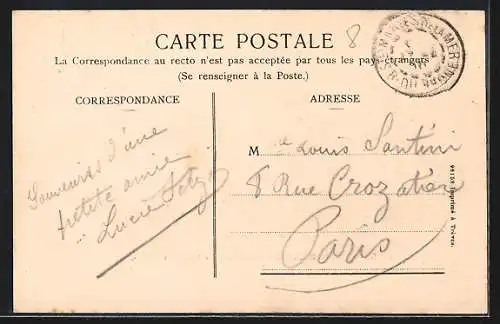 8
CARTE POSTALE
La Correspondance au recto n'est pas acceptée par tous les pays étrangers
(Se renseigner à la Poste.)
CORRESPONDANCE
ADRESSE
Souvenirs d'une
petite amie
Lucie
M Louis Santini
8 Rue Crozatier
Paris
Imprimé à Trèves.